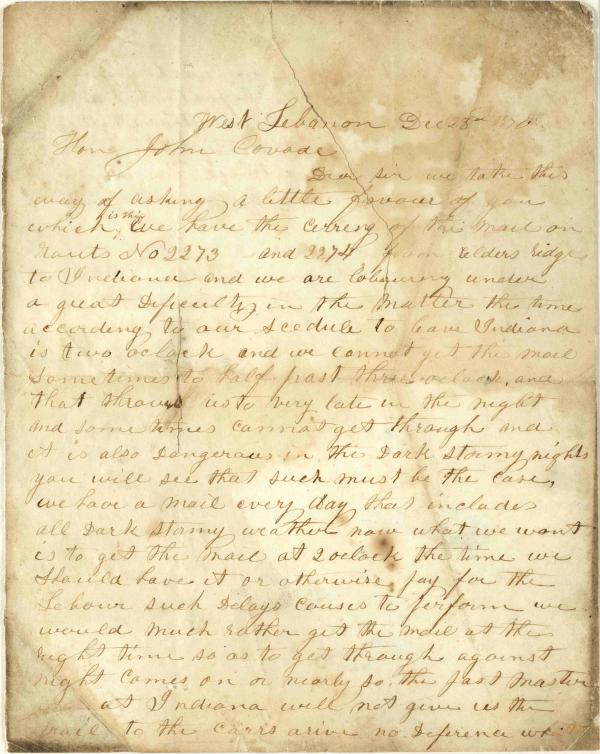 West Lebanon Dec 23rd 1870
Hon John Covode
Dear sir we take this
way of asking a little favour of you
which is this We have the cerreng of the mail on
Routs No 2273 and 2274 from Elders Ridge
to Indiana and we are labouring under
a great Dificulty in the matter the time
according to our Scedule to leave Indiana
is two oclock and we cannot get the mail
Sometimes to half past three oclock, and
that throws us to very late in the night
and some times cannot get through and
it is also Dangerous in the Dark stormy nights
you will see that such must be the case,
we have a mail every day that includes
all Dark stormy weather now what we want
is to get the mail at 2 oclock the time we
Should have it or otherwise pay for the
Labour such Delays causes to perform we
would much rather get the mail at the
right time so as to get through against
night comes on or nearly so. the post master
at Indiana will not give us the
mail to the carrs arive no Deference